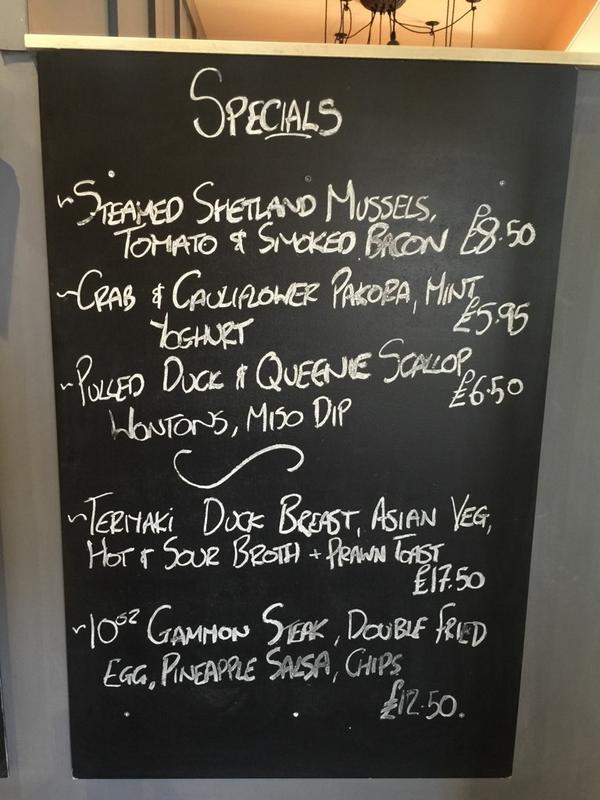 SPECIALS
~STEAMED SHETLAND MUSSELS,
TOMATO & SMOKED BACON £8.50
~CRAB & CAULIFLOWER PAKORA, MINT
YOGHURT £5.95
~PULLED DUCK & QUEENIE SCALLOP
WONTONS, MISO DIP £6.50
~TERIYAKI DUCK BREAST, ASIAN VEG,
HOT & SOUR BROTH + PRAWN TOAST
£17.50
~10oz GAMMON STEAK, DOUBLE FRIED
EGG, PINEAPPLE SALSA, CHIPS
£12.50.